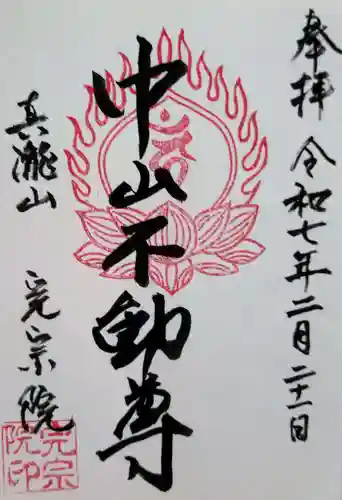 奉拝 令和七年二月二十一日
中山不動尊
真瀧山 完宗院
完宗
院印